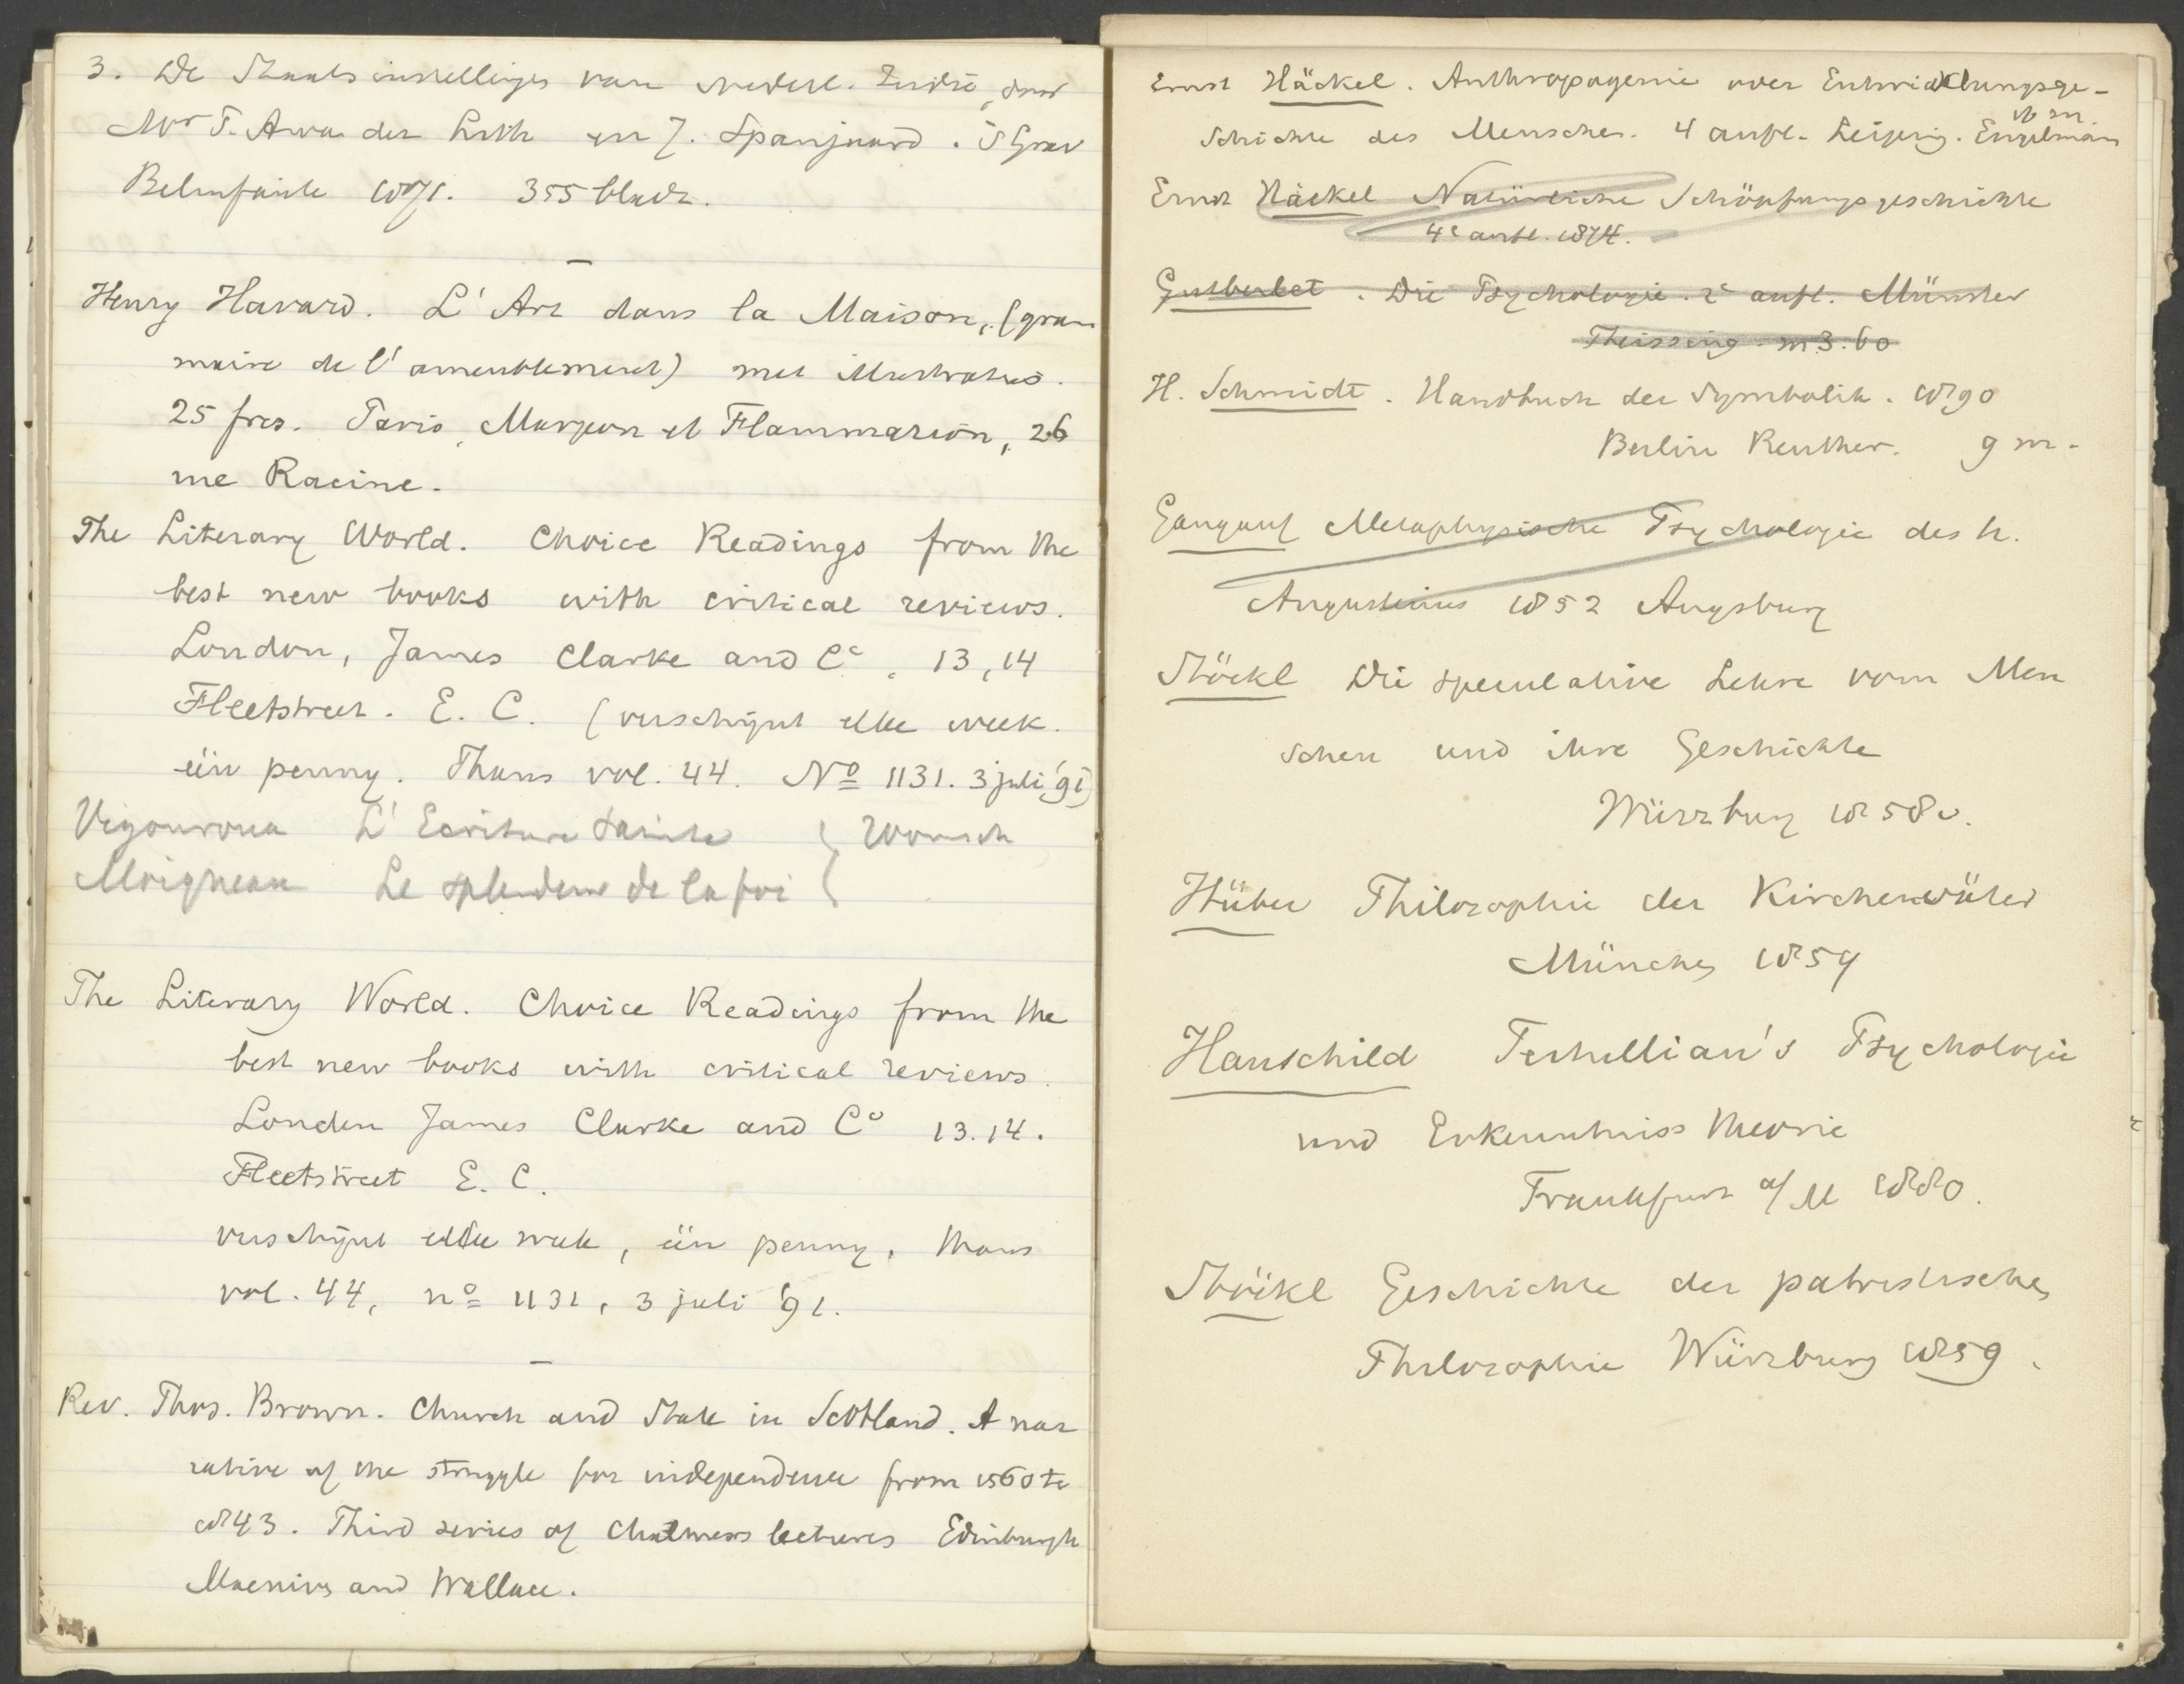 3. De Staatsinstellingen van Nederl. Indië, door
Mr P. A. van der Lith en J. Spanjaard. 's Grav
Belinfante 1891. 355 bladz.
Henry Havard. L'Art dans la Maison, (gram
maire de l'ameublement) met illustraties.
25 frcs. Paris, Marpon et Flammarion, 26
rue Racine.
The Literary World. Choice Readings from the
best new books with critical reviews.
London, James Clarke and Co, 13, 14
Fleetstreet. E. C. (verschijnt elke week.
één penny. Thans vol. 44. No 1131. 3 juli '91)
Vigouroux L'Ecriture Sainte
Moigneau Le splendeur de la foi
The Literary World. Choice Readings from the
best new books with critical reviews.
London James Clarke and Co 13.14.
Fleetstreet E. C.
verschijnt elke week, één penny, thans
vol. 44, no 1131, 3 juli '91.
Rev. Thos. Brown. Church and State in Scotland. A nar
rative of the struggle for independence from 1560 to
1843. Third series of Chalmers lectures Edinburgh
Macniven and Wallace.
Ernst Häckel. Anthropogenie oder Entwicklungsge-
schichte des Menschen. 4 aufl. Leipzig. Engelman
16 m.
Ernst Häckel Natürliche Schöpfungsgeschichte
4e aufl. 1874.
Gutberlet. Die Psychologie. 2e aufl. Münster
Theissing. m 3.60
H. Schmidt. Handbuch der Symbolik. 1890
Berlin Reuther. 9 m.
Gangauf Metaphysische Psychologie des h.
Augustinus 1852 Augsburg
Stöckl Die speculative Lehre vom Men
schen und ihre Geschichte
Würzburg 1858
Hüber Philosophie der Kirchenväter
München 1859
Hauschild Tertullian's Psychologie
und Erkenntniss theorie
Frankfurt a/M 1880.
Stöckl Geschichte der patristischen
Philosophie Würzburg 1859.